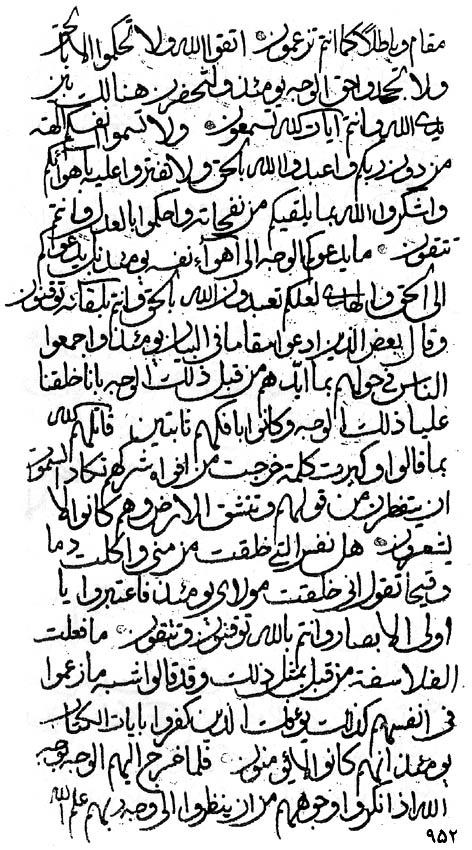 مقام وباطلا كما انتم تزعمون اتقوا الله ولا تحكموا الا بالحق
ولا تجحدوا حق الوجه يومئذ ولتحضرن هنالك بين
يدي الله وانتم آيات الله تسمعون ولا تسموا انفسكم آلهة
من دون ربكم واعبدوا الله بالحق ولا تفتروا عليه باهوائكم
واشكروا الله بما يلقيكم من نفحاته واحكموا بالعدل وانتم
تتقون ما يدعوكم الوجه الى اهواء نفسه يومئذ بل يدعوكم
الى الحق والهدى لعلكم تعبدون الله بالحق وانتم بلقائه توقنون
وقال بعض الذين ادعوا مقاما في البيان يومئذ واجمعوا
الناس في حولهم بما ايدهم من قبل ذلك الوجه بانا خلقنا
عليا ذلك الوجه وكانوا بافكهم ثابتين قاتلهم الله
بما قالوا وكبرت كلمة خرجت من افواه شركهم تكاد السموات
ان يتفطرن من قولهم وتنشق الارض وهم كانوا لا
يشعرون هل نفس التي خلقت من مني واكلت دما
وقيحا تقول اني خلقت مولاي يومئذ فاعتبروا يا
اولي الابصار وانتم بالله توقنون وتتقون ما فعلت
الفلاسفة من قبل بمثل ذلك وقد قالوا شبه ما زعموا
في انفسهم كذلك يؤفك الذين كفروا بايات الكتاب
يومئذ انهم كانوا لا يؤمنون فلما خرج اليهم الوجه بوجه
الله اذا نكروا وجوههم من ان ينظروا الى وجه ربهم علم الله
٩٥٢